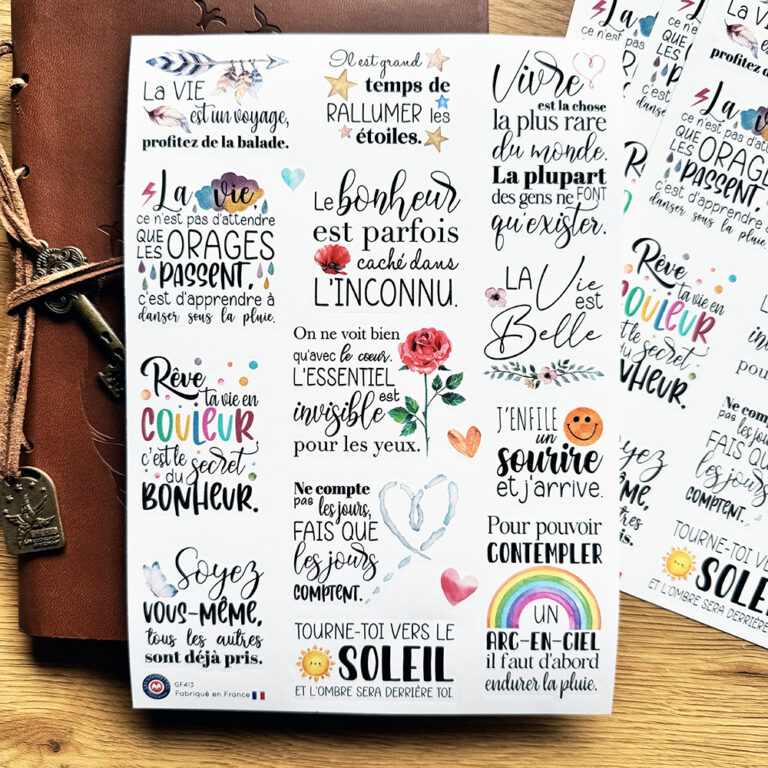 La VIE
est un voyage,
profitez de la balade.
Il est grand
temps de
RALLUMER les
étoiles.
Vivre
est la chose
la plus rare
du monde.
La plupart
des gens ne FONT
qu'exister.
La vie,
ce n'est pas d'attendre
QUE
LES ORAGES
PASSENT,
c'est d'apprendre à
danser sous la pluie.
Le bonheur
est parfois
caché dans
L'INCONNU.
LA Vie
est
Belle
Rêve
ta vie en
COULEUR,
c'est le secret
du
BONHEUR.
On ne voit bien
qu'avec le cœur.
L'ESSENTIEL
est
invisible
pour les yeux.
J'ENFILE
un
sourire
et j'arrive.
Ne compte
pas les jours,
FAIS QUE
les jours
COMPTENT.
Pour pouvoir
CONTEMPLER
UN
ARC-EN-CIEL
il faut d'abord
endurer la pluie.
Soyez
VOUS-MÊME,
tous les autres
sont déjà pris.
TOURNE-TOI VERS LE
SOLEIL
ET L'OMBRE SERA DERRIÈRE TOI
GF413
Fabriqué en France
La v
ce n'est pas
profitez de
La vie
ce n'est pas d'att
QUE
LES ORAGES
PASSENT,
c'est d'apprendre à
danser sous la pluie.
Rêve
ta vie en
COULEUR
c'est le secret
du
BONHEUR.
Ne compte
pas les jou
FAIS QU
les jour
COMPTENT.
TOURNE-TOI VERS
SOLE
ET L'OMBRE SERA DERRIÈRE